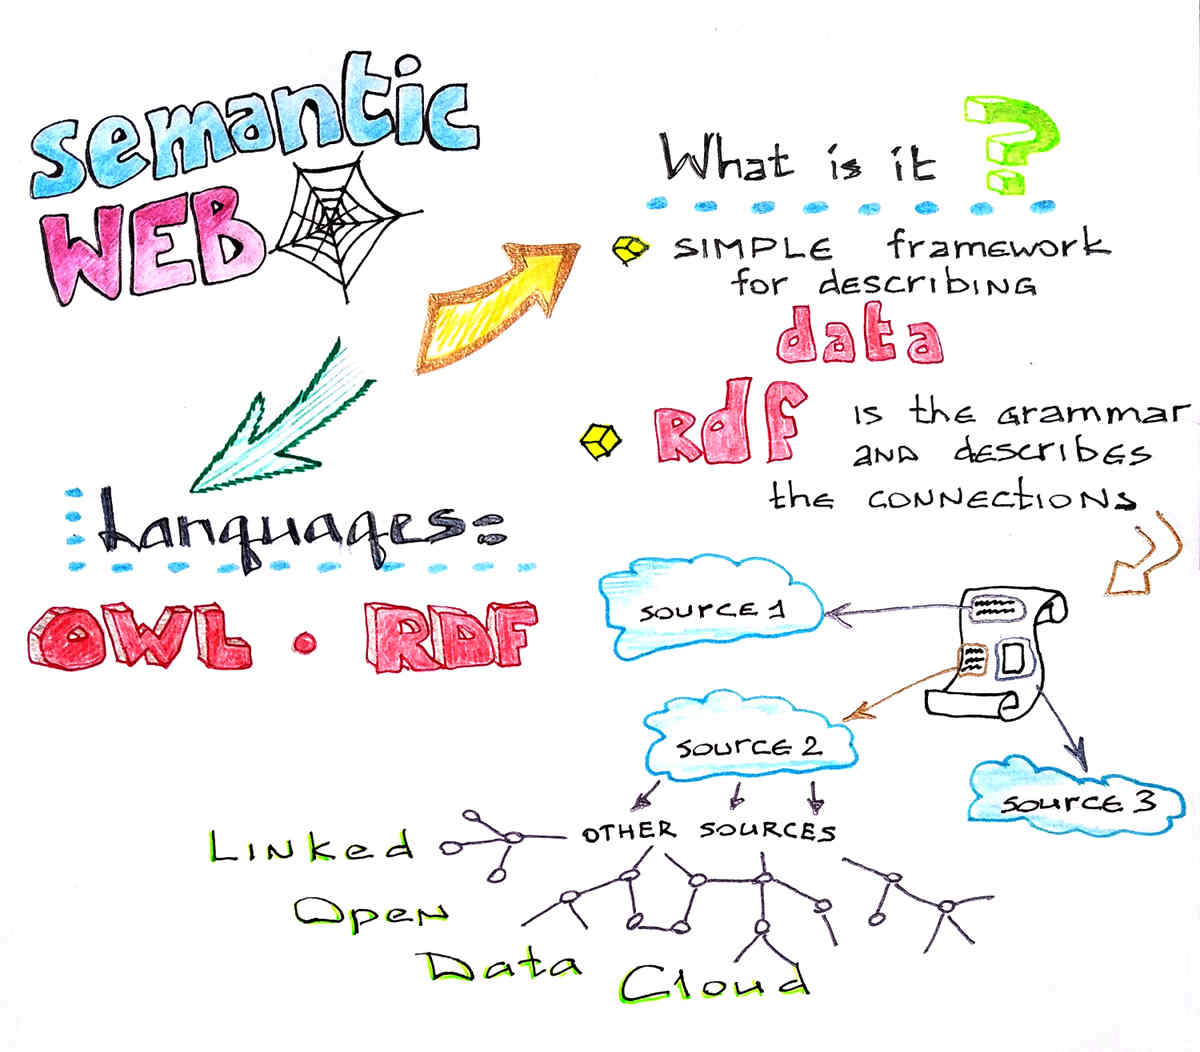 semantic
WEB
What is it ?
SIMPLE framework
for describing
data
Rdf is the grammar
and describes
the connections
Languages:
OWL • RDF
source 1
source 2
source 3
OTHER SOURCES
Linked
Open
Data
Cloud